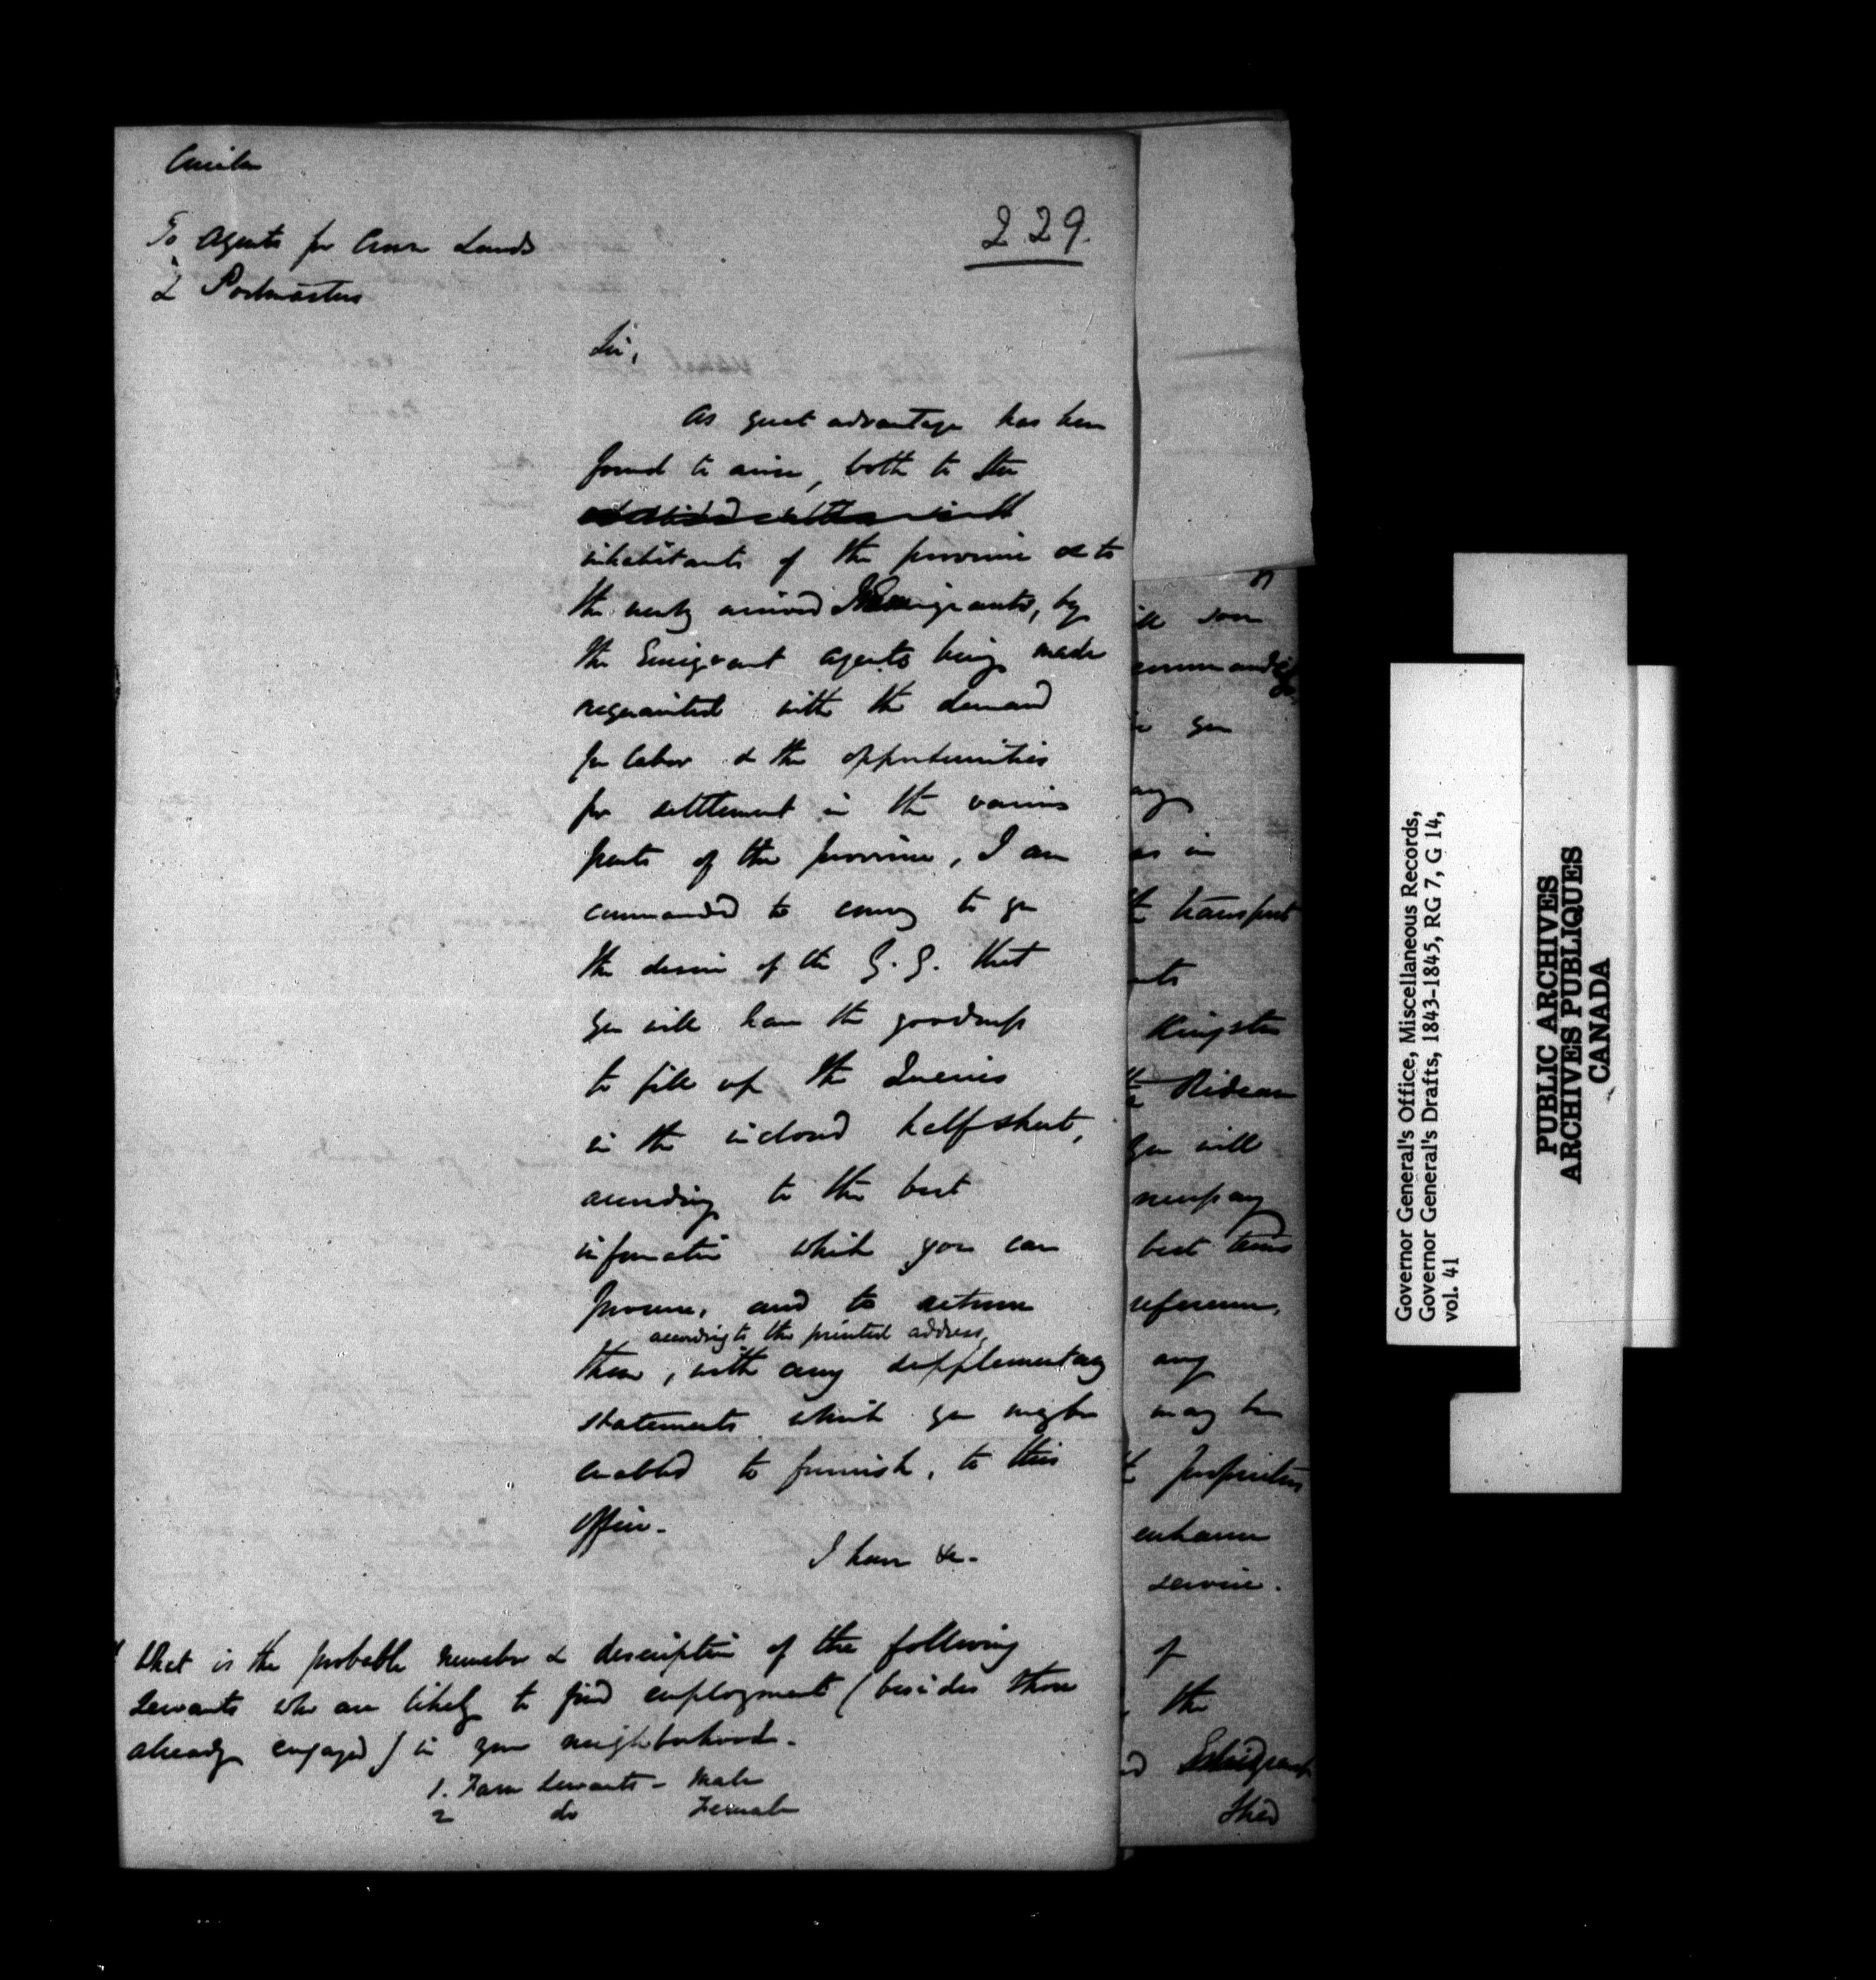 Circular
To Agents for Crown Lands
& Postmasters
229.
Sir,
As great advantage has been
found to arise, both to the
inhabitants of the province & to
the newly arrived Emigrants, by
the Emigrant agents being made
acquainted with the demand
for labor & the opportunities
for settlement in the various
parts of the province, I am
commanded to convey to you
the desire of the G. G. that
you will have the goodness
to fill up the Queries
in the inclosed half sheet,
according to the best
information which you can
procure, and to return
according to the printed address,
them, with any supplementary
statements which you may be
enabled to furnish, to this
office.
I have &c.
What is the probable number & description of the following
servants who are likely to find employment (besides those
already engaged) in your neighborhood.
1. Farm servants - Male
2 do Female
soon
you
any
as in
transport
Kingston
Rideau
you will
best terms
reference,
any
may be
proprietors
enhance
service.
of
the
Emigrant
Shed
Governor General's Office, Miscellaneous Records,
Governor General's Drafts, 1843-1845, RG 7, G 14,
vol. 41
PUBLIC ARCHIVES
ARCHIVES PUBLIQUES
CANADA